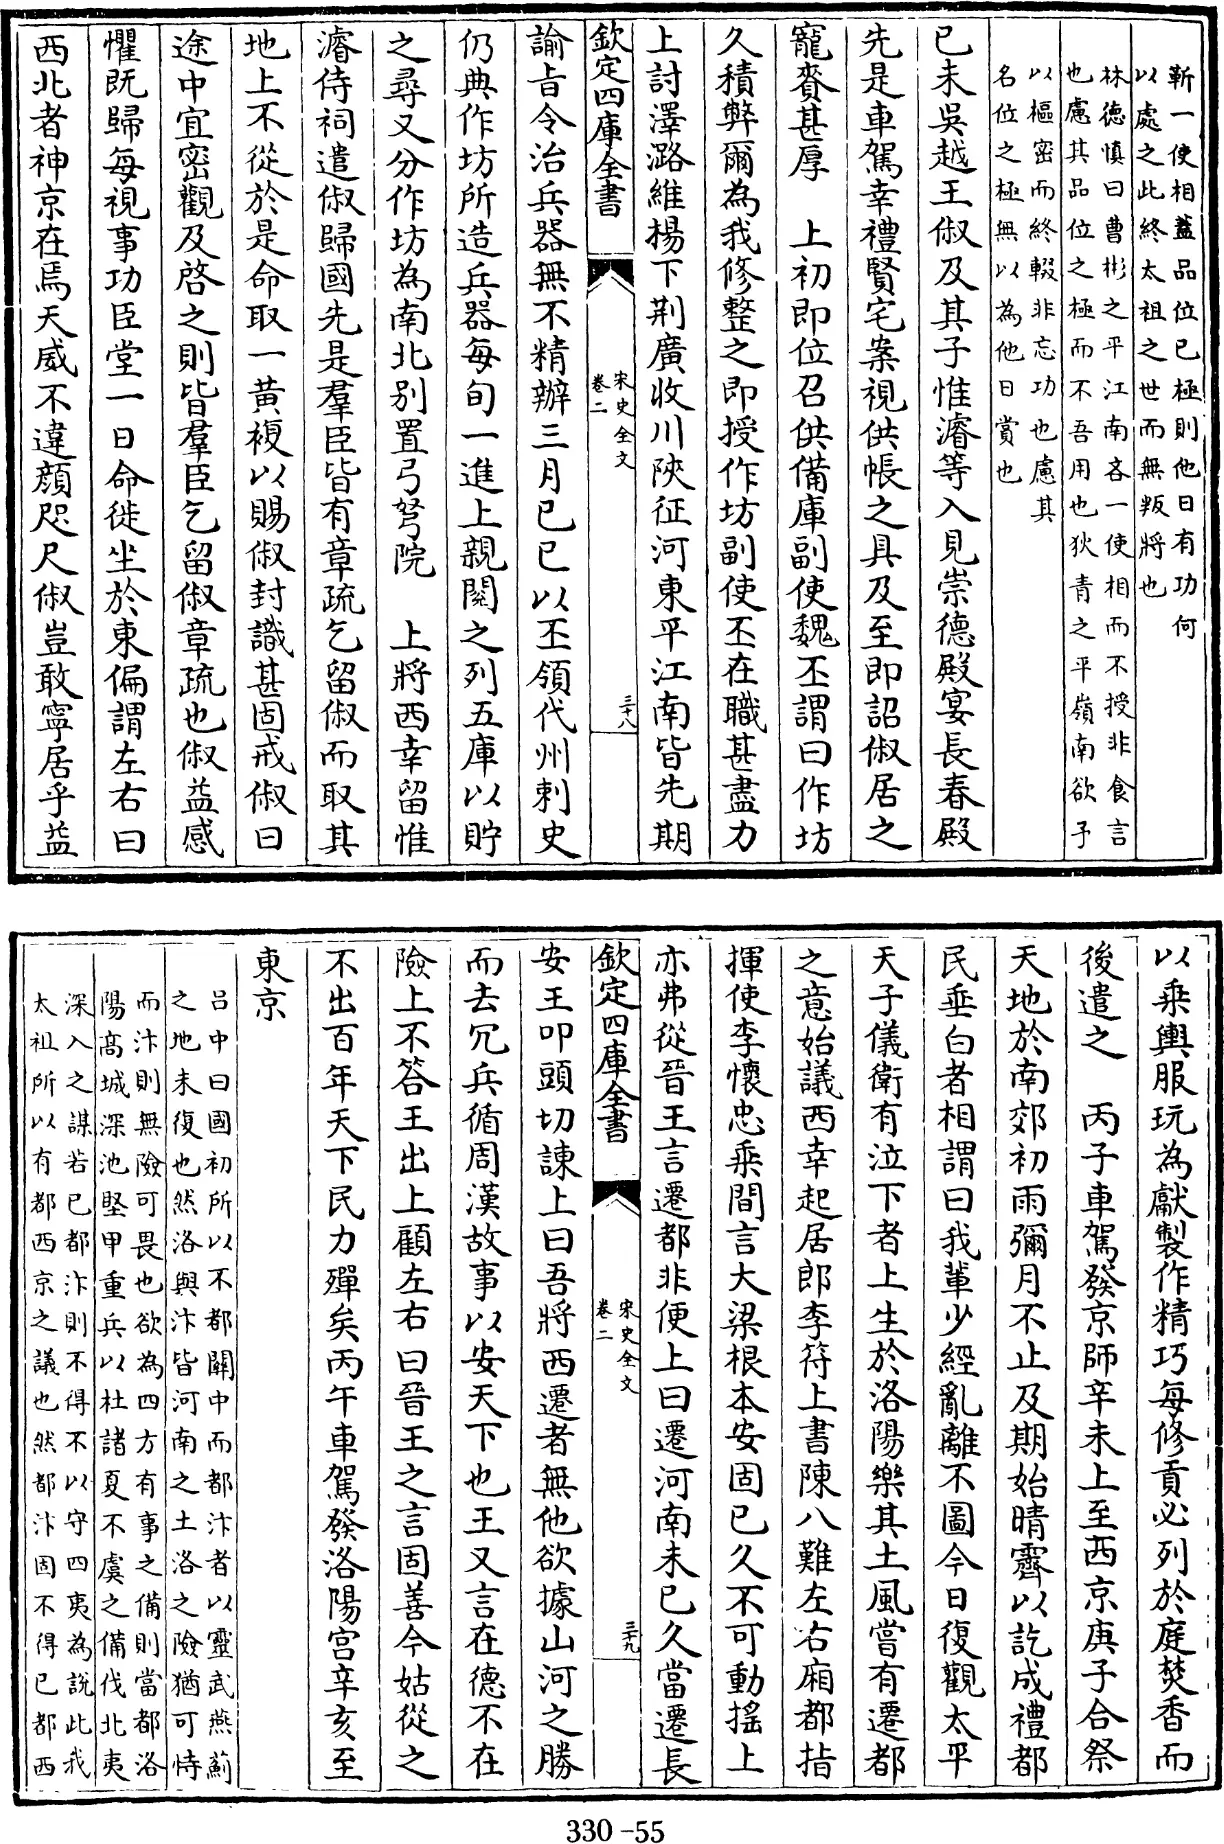 靳一使相蓋品位已極則他日有功何
以處之此終太祖之世而無叛將也
林德慎曰曹彬之平江南吝一使相而不授非食言
也慮其品位之極而不吾用也狄青之平嶺南欲予
以樞密而終輟非忘功也慮其
名位之極無以為他日賞也
已未吳越王俶及其子惟濬等入見崇德殿宴長春殿
先是車駕幸禮賢宅案視供帳之具及至即詔俶居之
寵賚甚厚　上初即位召供備庫副使魏丕謂曰作坊
久積弊爾為我修整之即授作坊副使丕在職甚盡力
上討澤潞維揚下荆廣收川陝征河東平江南皆先期
欽定四庫全書
宋史全文
卷二
三十八
諭旨令治兵器無不精辦三月已巳以丕領代州刺史
仍典作坊所造兵器每旬一進上親閱之列五庫以貯
之尋又分作坊為南北别置弓弩院　上將西幸留惟
濬侍祠遣俶歸國先是羣臣皆有章疏乞留俶而取其
地上不從於是命取一黃複以賜俶封識甚固戒俶曰
途中宜密觀及啓之則皆羣臣乞留俶章疏也俶益感
懼既歸每視事功臣堂一日命徙坐於東偏謂左右曰
西北者神京在焉天威不違顔咫尺俶豈敢寧居乎益
以乘輿服玩為獻製作精巧每修貢必列於庭焚香而
後遣之　丙子車駕發京師辛未上至西京庚子合祭
天地於南郊初雨彌月不止及期始晴霽以訖成禮都
民垂白者相謂曰我輩少經亂離不圖今日復觀太平
天子儀衛有泣下者上生於洛陽樂其土風嘗有遷都
之意始議西幸起居郎李符上書陳八難左右廂都指
揮使李懷忠乘間言大梁根本安固已久不可動搖上
亦弗從晉王言遷都非便上曰遷河南未已久當遷長
欽定四庫全書
宋史全文
卷二
三十九
安王叩頭切諫上曰吾將西遷者無他欲據山河之勝
而去冗兵循周漢故事以安天下也王又言在德不在
險上不答王出上顧左右曰晉王之言固善今姑從之
不出百年天下民力殫矣丙午車駕發洛陽宮辛亥至
東京
吕中曰國初所以不都關中而都汴者以靈武燕薊
之地未復也然洛與汴皆河南之土洛之險猶可恃
而汴則無險可畏也欲為四方有事之備則當都洛
陽高城深池堅甲重兵以杜諸夏不虞之備伐北夷
深入之謀若已都汴則不得不以守四夷為說此我
太祖所以有都西京之議也然都汴固不得已都西
330-55